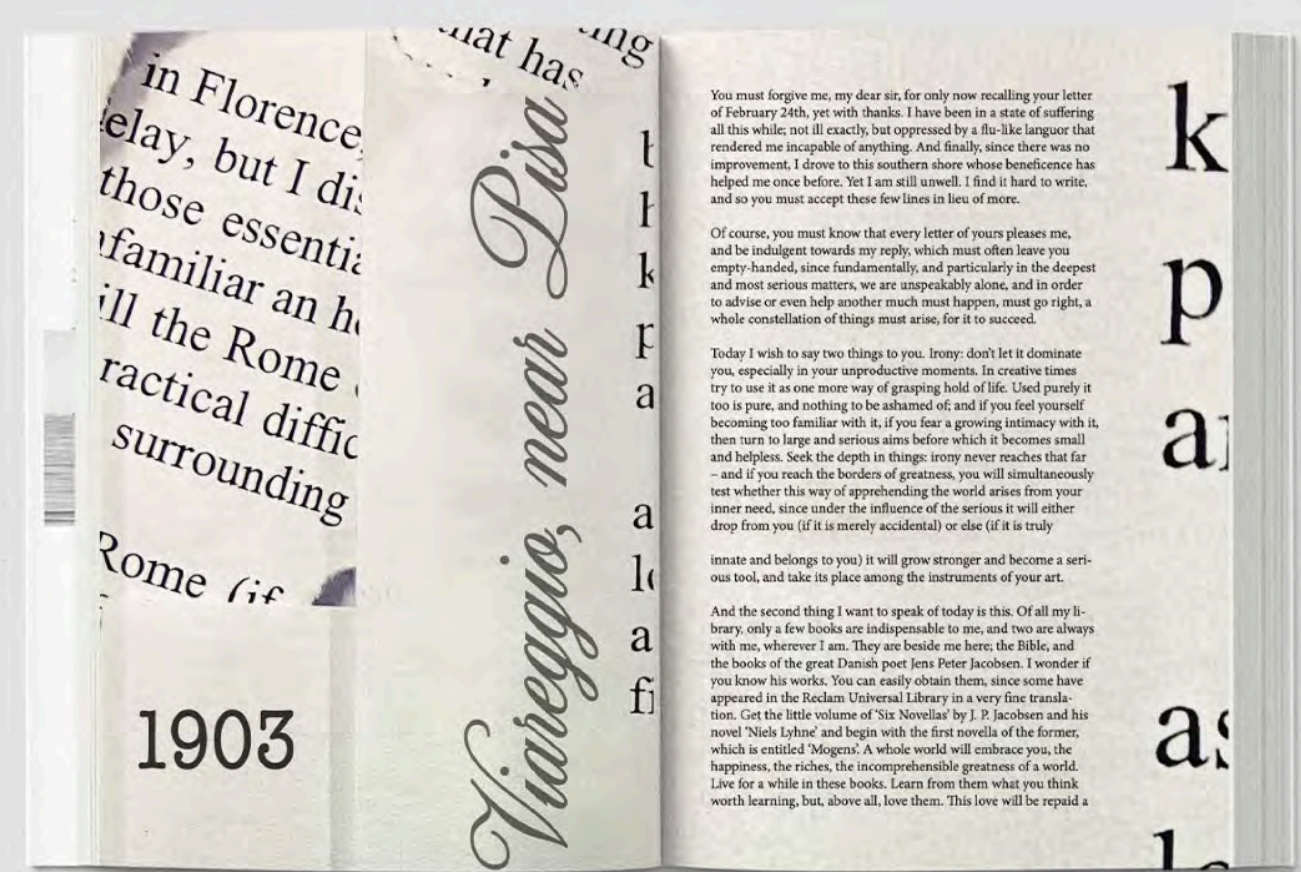 in Florence,
elay, but I dis
those essentia
nfamiliar an ho
ill the Rome
ractical diffic
surrounding
Rome (if
1903
that has
ting
Viareggio, near Pisa
h
k
p
a
a
lo
a
fi
You must forgive me, my dear sir, for only now recalling your letter
of February 24th, yet with thanks. I have been in a state of suffering
all this while; not ill exactly, but oppressed by a flu-like languor that
rendered me incapable of anything. And finally, since there was no
improvement, I drove to this southern shore whose beneficence has
helped me once before. Yet I am still unwell. I find it hard to write,
and so you must accept these few lines in lieu of more.
Of course, you must know that every letter of yours pleases me,
and be indulgent towards my reply, which must often leave you
empty-handed, since fundamentally, and particularly in the deepest
and most serious matters, we are unspeakably alone, and in order
to advise or even help another much must happen, must go right, a
whole constellation of things must arise, for it to succeed.
Today I wish to say two things to you. Irony: don't let it dominate
you, especially in your unproductive moments. In creative times
try to use it as one more way of grasping hold of life. Used purely it
too is pure, and nothing to be ashamed of; and if you feel yourself
becoming too familiar with it, if you fear a growing intimacy with it,
then turn to large and serious aims before which it becomes small
and helpless. Seek the depth in things: irony never reaches that far
– and if you reach the borders of greatness, you will simultaneously
test whether this way of apprehending the world arises from your
inner need, since under the influence of the serious it will either
drop from you (if it is merely accidental) or else (if it is truly
innate and belongs to you) it will grow stronger and become a seri-
ous tool, and take its place among the instruments of your art.
And the second thing I want to speak of today is this. Of all my li-
brary, only a few books are indispensable to me, and two are always
with me, wherever I am. They are beside me here; the Bible, and
the books of the great Danish poet Jens Peter Jacobsen. I wonder if
you know his works. You can easily obtain them, since some have
appeared in the Reclam Universal Library in a very fine transla-
tion. Get the little volume of 'Six Novellas' by J. P. Jacobsen and his
novel 'Niels Lyhne' and begin with the first novella of the former,
which is entitled 'Mogens'. A whole world will embrace you, the
happiness, the riches, the incomprehensible greatness of a world.
Live for a while in these books. Learn from them what you think
worth learning, but, above all, love them. This love will be repaid a
k
p
a
as